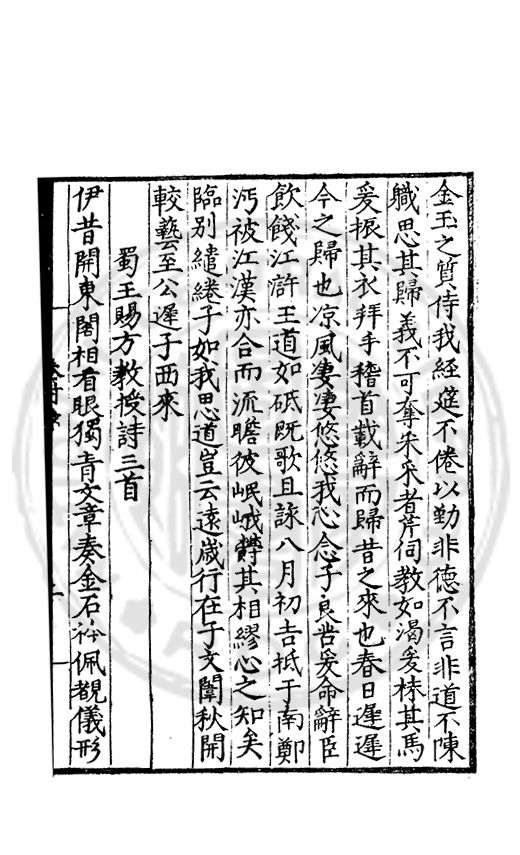 金玉之質侍我經筵不倦以勤非德不言非道不陳
職思其歸義不可奪采采者芹伺教如渴爰秣其馬
爰振其衣拜手稽首載辭而歸昔之來也春日遲遲
今之歸也凉風凄凄悠悠我心念子良苦爰命辭臣
飲餞江滸王道如砥既歌且詠八月初吉抵于南鄭
沔被江漢亦合而流瞻彼岷峨鬱其相繆心之知矣
臨別繾綣子如我思道豈云遠歲行在子文闈秋開
較藝至公遲子西來
蜀王賜方教授詩三首
伊昔開東閣相看眼獨青文章奏金石衿佩覩儀形